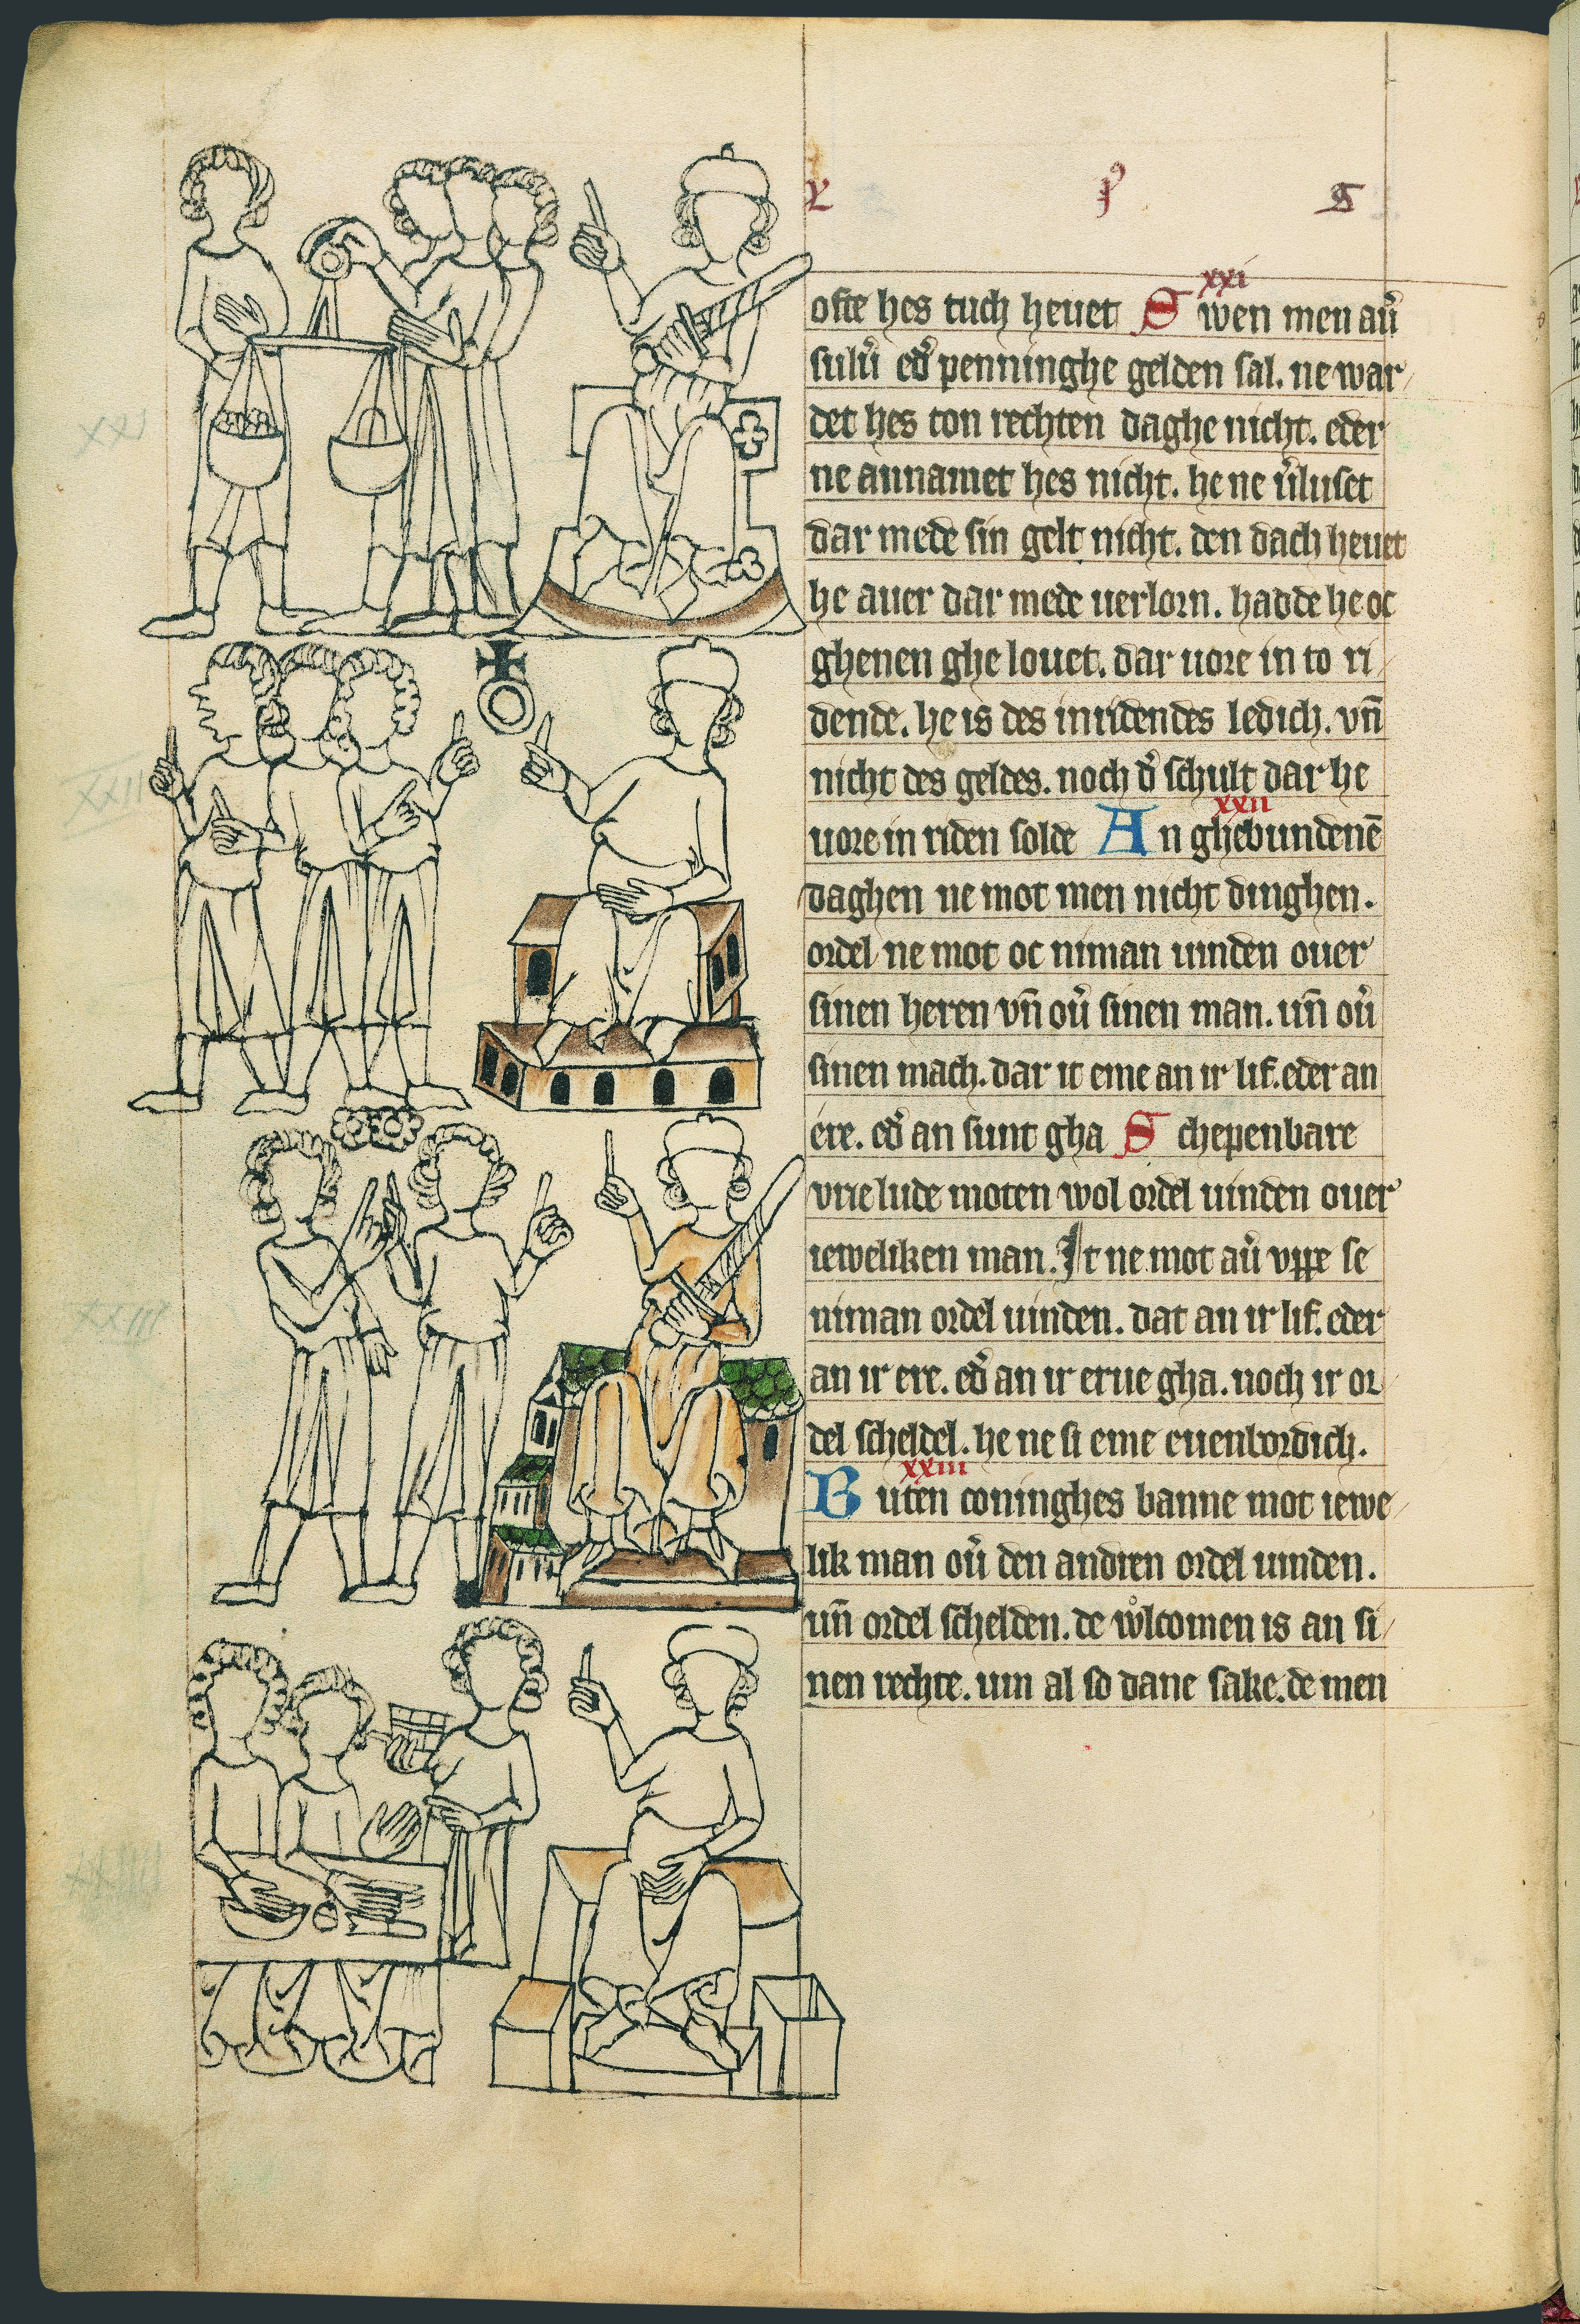 xxi
ofte hes tuch heuet Swen men au̓
sulu̓i ed̓ penninghe gelden sal. ne war
det hes ton rechten daghe nicht. eder
ne annamet hes nicht. he ne u̓luset
dar mede sin gelt nicht. den dach heuet
he auer dar mede uerlorn. hadde he oc
ghenen ghe louet. dar uore in to ri
dende. he is des inridendes ledich. vn̄
nicht des geldes. noch d̓ schult dar he
xxii
uore in riden solde An ghebundenē
daghen ne mot men nicht dinghen.
ordel ne mot oc niman uinden ouer
sinen heren vn̄ ou̓ sinen man. un̄ ou̓
sinen mach. dar it eme an ir lif. eder an
ere. ed̓ an sunt gha Schepenbare
vrie lude moten wol ordel uinden ouer
ieweliken man. It ne mot au̓ vppe se
niman ordel uinden. dat an ir lif. eder
an ir ere. ed̓ an ir erue gha. noch ir or
del scheldel. he ne si eme euenbordich.
xxiii
Buten coninghes banne mot iewe
lik man ou̓ den andren ordel uinden.
un̄ ordel schelden. de wͦlcomen is an si
nen rechte. um al so dane sake. de men
XXI
XXII
XXIII
XXIIII